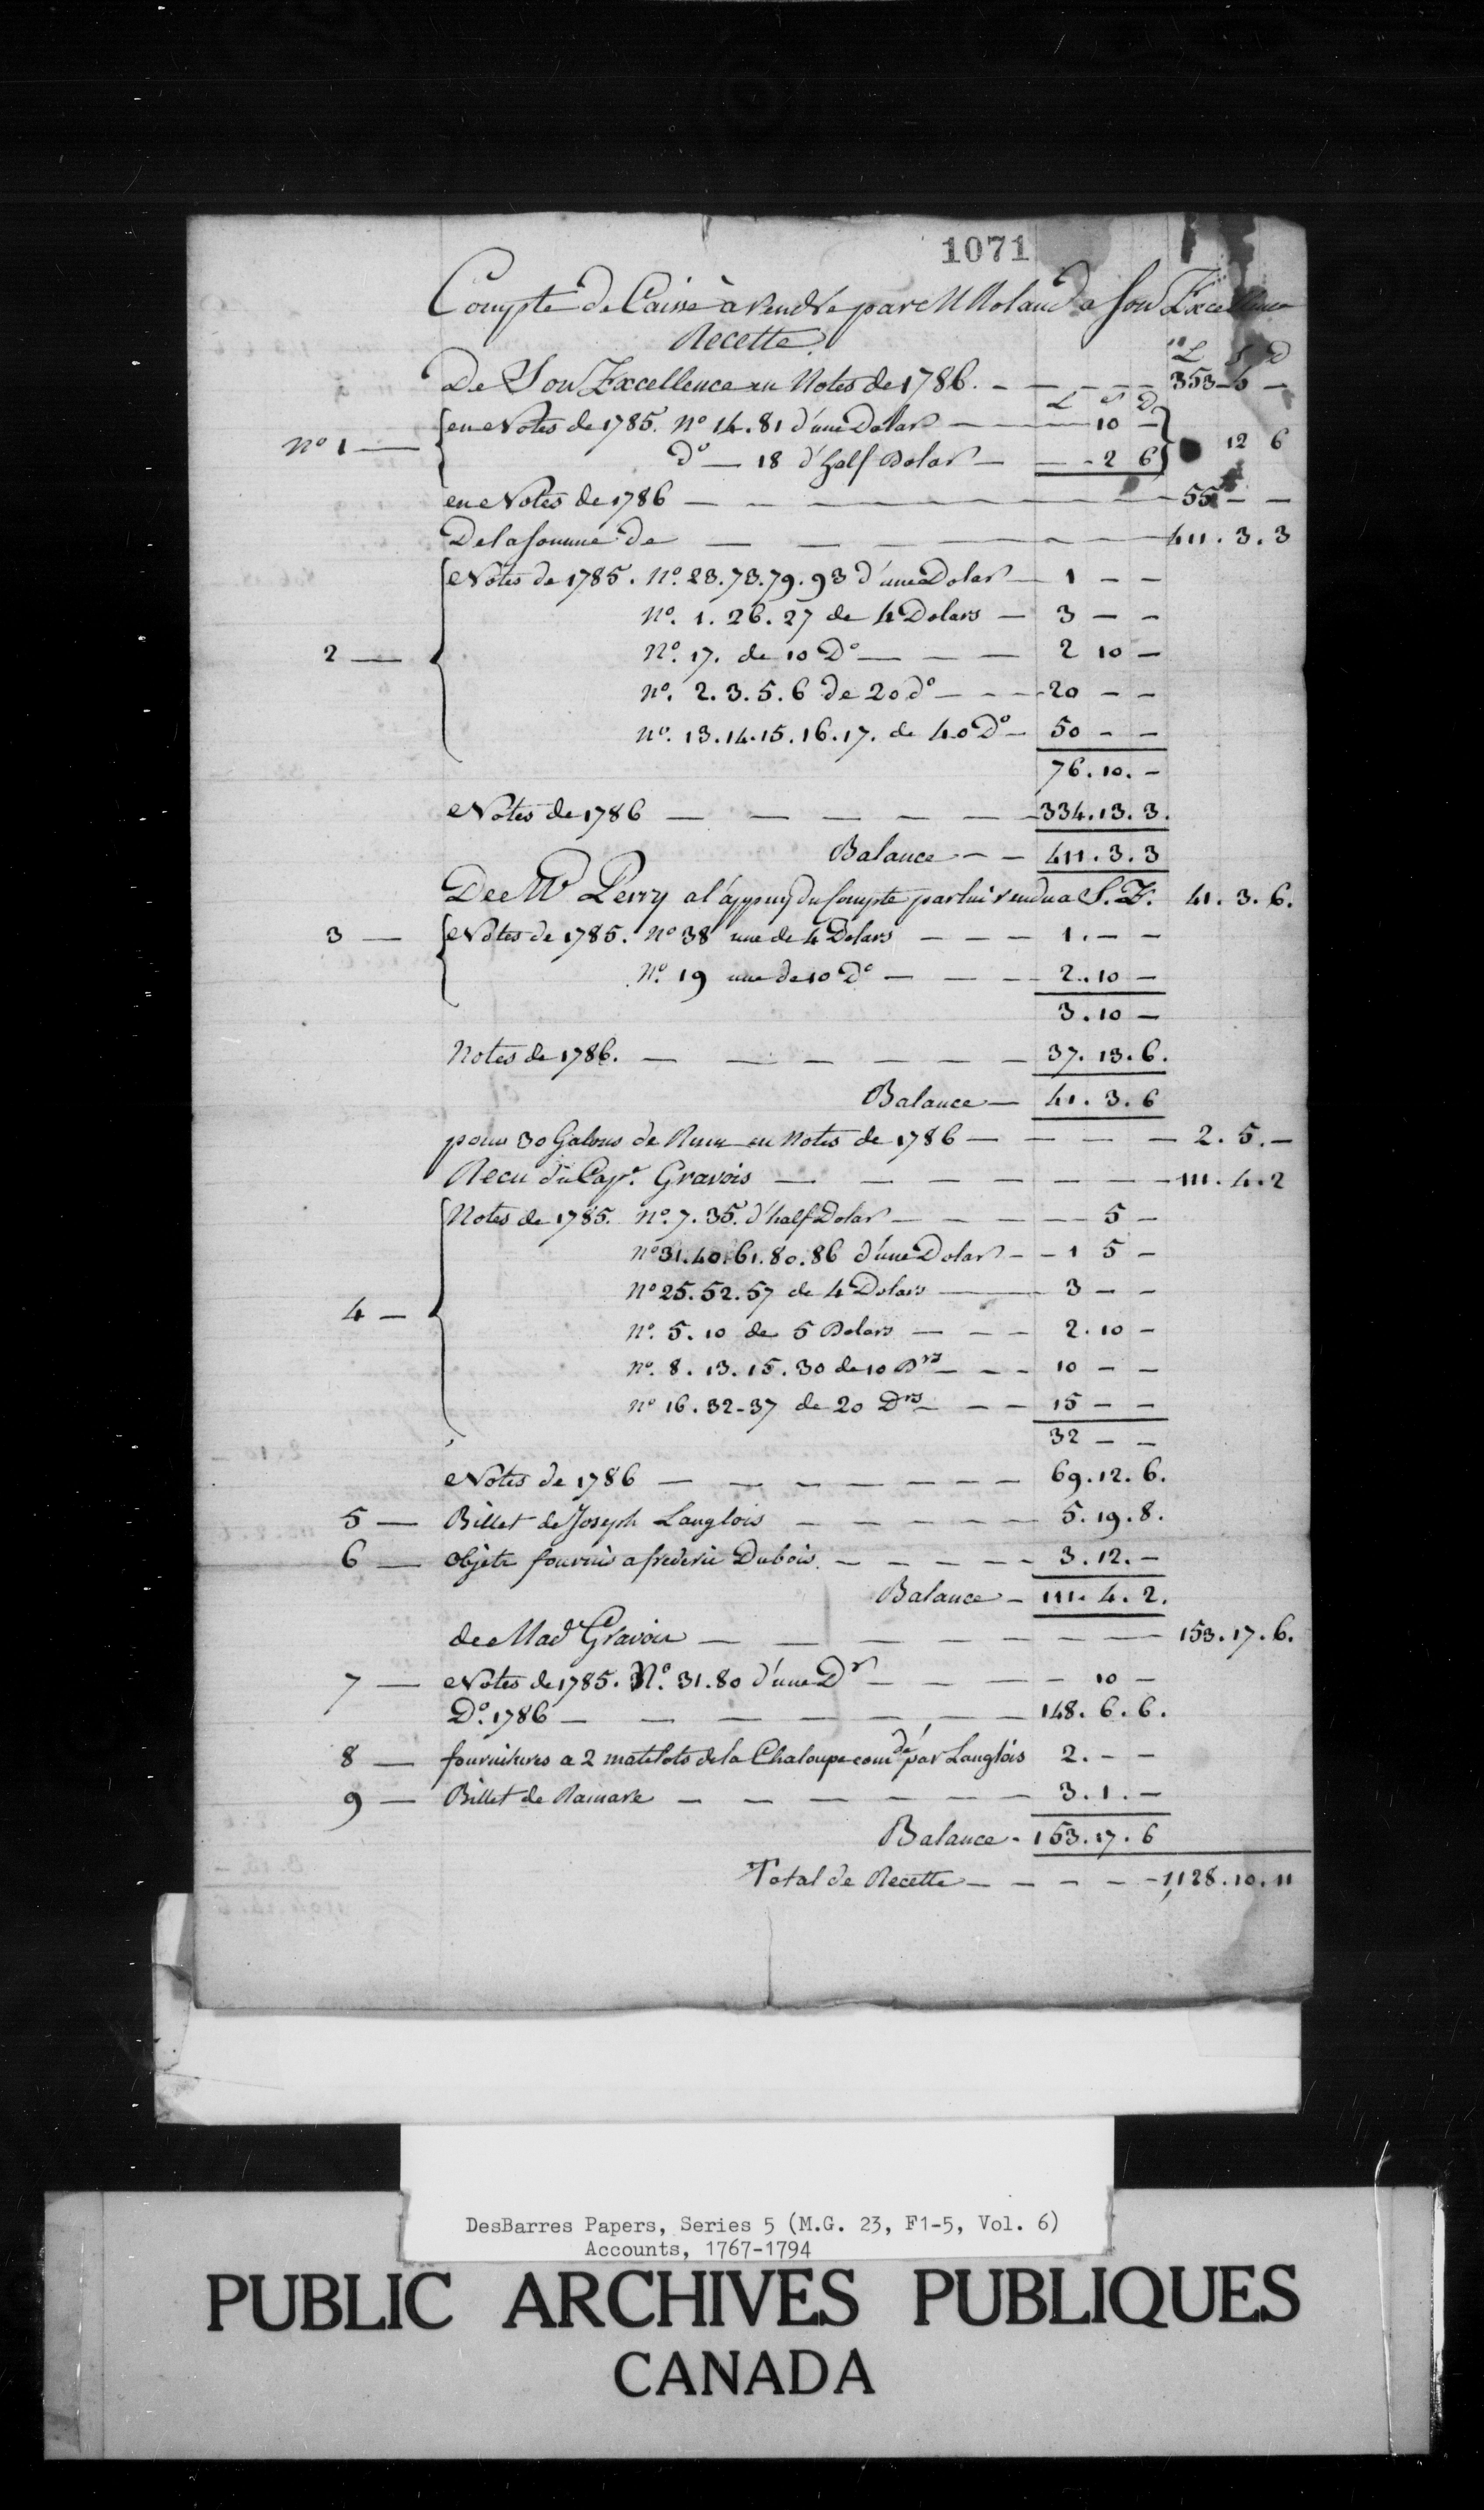 1071
Compte de Caisse à rendre par M Roland a Son Excellence
Recette.
L S D
De Son Excellence en Notes de 1786. - - - - - 353 - 5 -
L S D
No 1 — en Notes de 1785. No 14. 81 d'une Dolar — 10 - 12 6
Do — 18 d'half Dolar — - 2 6
en Notes de 1786 — 55 - -
De la somme de — 411. 3. 3
Notes de 1785. No. 23. 73. 79. 93 d'une Dolar — 1 - -
No. 1. 26. 27 de 4 Dolars — 3 - -
2 — No. 17. de 10 Do — 2 10 -
No. 2. 3. 5. 6 de 20 do - - - 20 - -
No. 13. 14. 15. 16. 17. de 40 Do - 50 - -
76. 10. -
Notes de 1786 — 334. 13. 3.
Balance - - 411. 3. 3
De Mr Perry a l'appuy du Compte par lui rendu a S. E. 41. 3. 6.
3 — Notes de 1785. No 38 une de 4 Dolars - - - 1. - -
No. 19 une de 10 Do - - - 2. 10 -
3. 10 -
Notes de 1786. — 37. 13. 6.
Balance — 41. 3. 6
pour 30 Galons de Rum en Notes de 1786 — 2. 5. -
Recu du Capt. Gravois — 111. 4. 2
Notes de 1785. No. 7. 35. d'half Dolar — 5 -
No 31. 40. 61. 80. 86 d'une Dolar - - 1 5 -
No 25. 52. 57 de 4 Dolars — 3 - -
4 — No. 5. 10 de 5 Dolars — - - 2. 10 -
No. 8. 13. 15. 30 de 10 Drs - - - 10 - -
No 16. 32 - 37 de 20 Drs - - - 15 - -
32 - -
Notes de 1786 — 69. 12. 6.
5 — Billet de Joseph Langlois — 5. 19. 8.
6 — objets fournis a frederic Dubois. - - - - - 3. 12. -
Balance - 111. 4. 2.
de Mad Gravois — 153. 17. 6.
7 — Notes de 1785. No. 31. 80 d'une Dr - - - - 10 -
Do. 1786 — 148. 6. 6.
8 — fournitures a 2 matelots de la Chaloupe comdée par Langlois 2. - -
9 — Billet de — 3. 1. -
Balance - 153. 17. 6
Total de Recette - - - - - 1,128. 10. 11
DesBarres Papers, Series 5 (M.G. 23, F1-5, Vol. 6)
Accounts, 1767-1794
PUBLIC ARCHIVES PUBLIQUES
CANADA